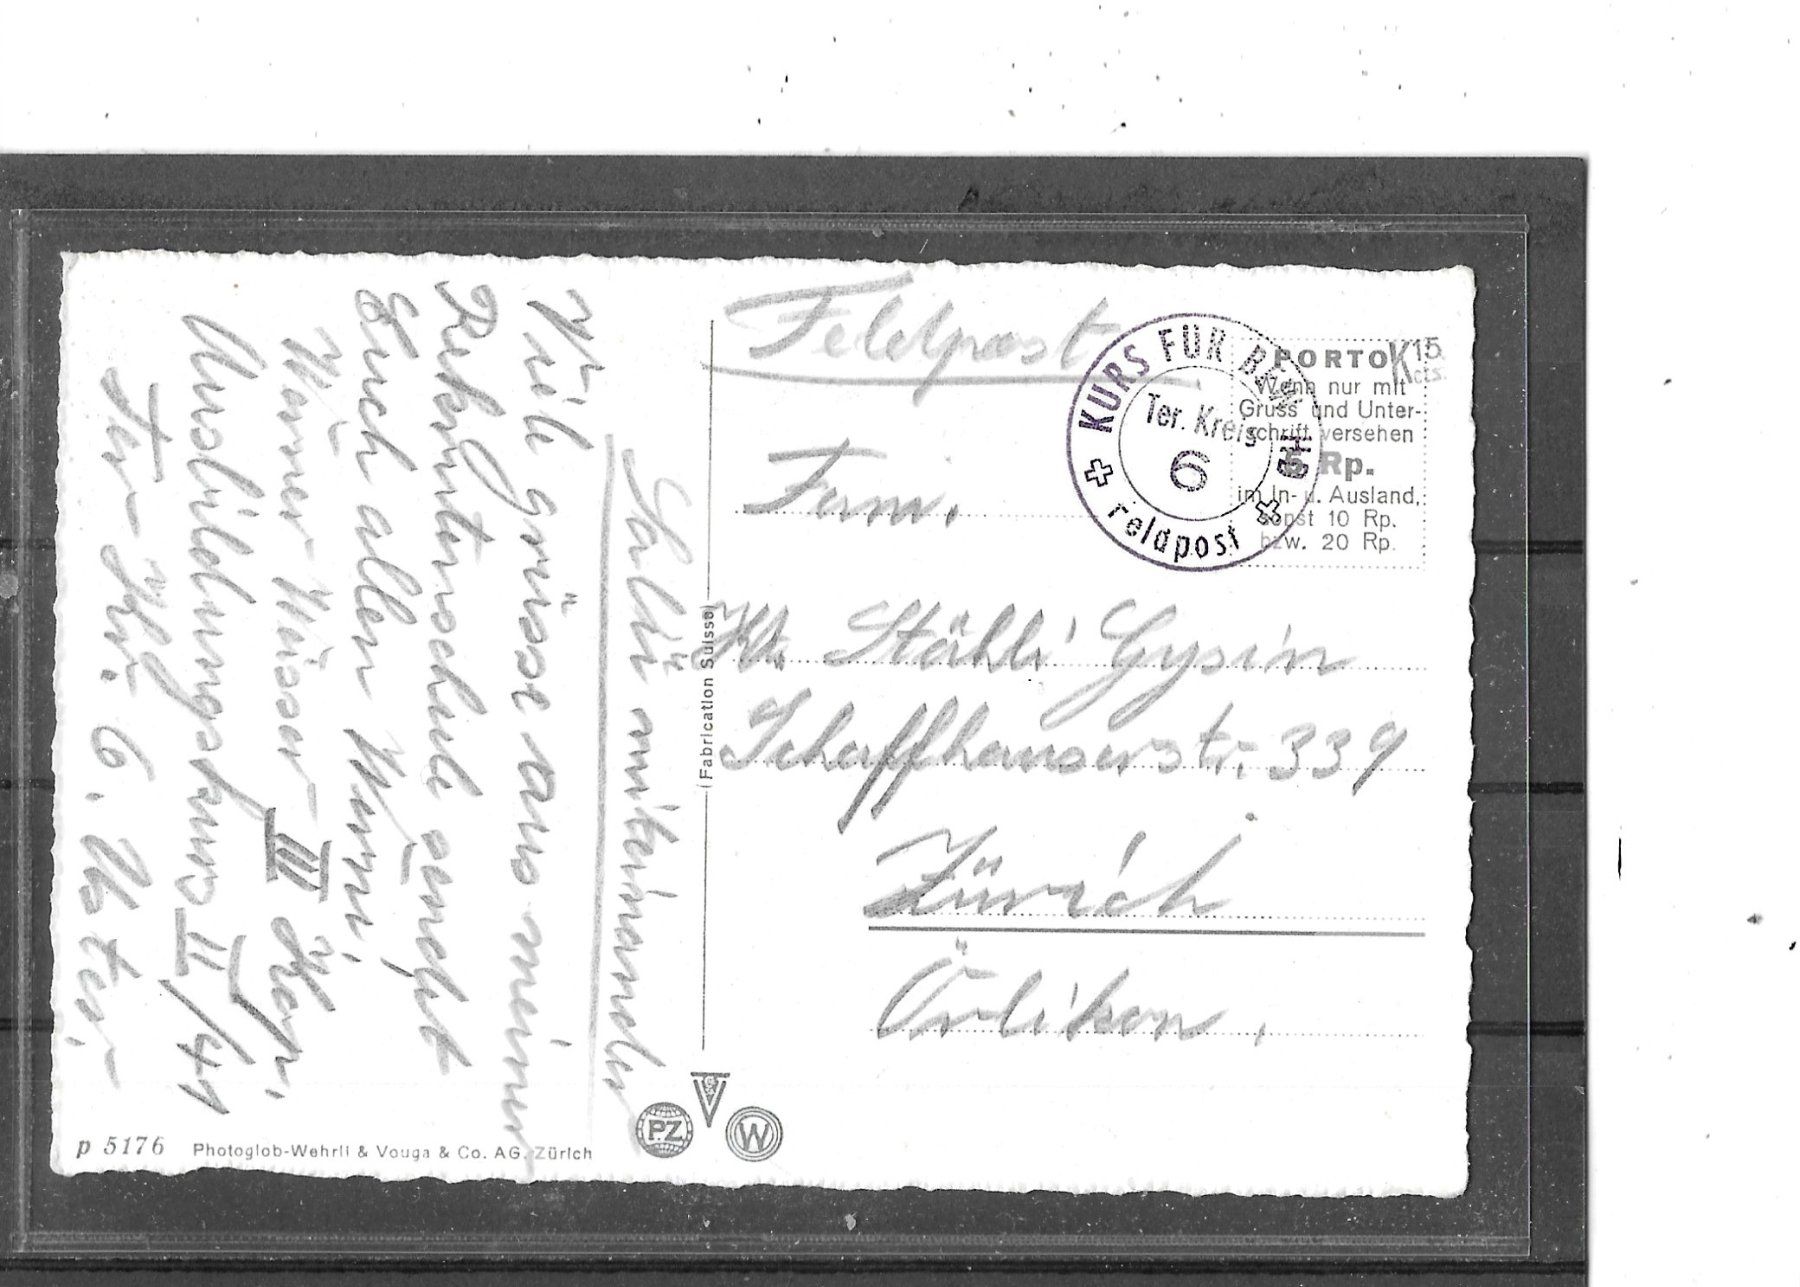 Feldpost
KURS FÜR BEW HD
Ter. Kreis
6
Feldpost
PORTO
K15
cts.
Wenn nur mit
Gruss und Unter-
schrift versehen
5 Rp.
im In- u. Ausland,
sonst 10 Rp.
bzw. 20 Rp.
Fam.
Stähli Gysin
Schaffhauserstr. 339
Zürich
Örlikon.
Salü mitenander
Vieli grüsse aus meiner
Rekrutenschule sendet
Euch allen
Werner III
Ausbildungskurs II/41
Ter. Kr. 6. Uster
(Fabrication Suisse)
PZ
V
W
p 5176 Photoglob-Wehrli & Vouga & Co. AG. Zürich